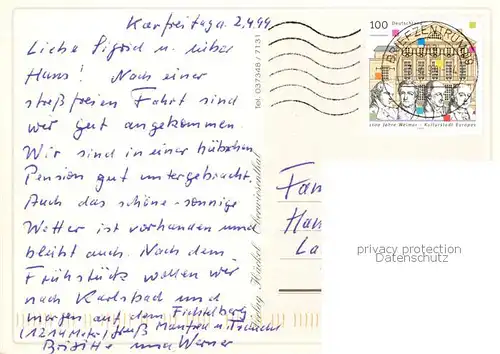 Karfreitag d. 2.4.99
Liebe Sigrid u. lieber
Hans! Nach einer
streßfreien Fahrt sind
wir gut angekommen.
Wir sind in einer hübschen
Pension gut untergebracht.
Auch das schöne-sonnige
Wetter ist vorhanden und
bleibt auch. Nach dem
Frühstück wollen wir
nach Karlsbad und
morgen auf dem Fichtelberg
(1214 Meter) Gruß Manfred u.
Brigitte und Werner
Tel. 037348 / 7131
Verlag Häckel Oberwiesenthal
100 Deutschland
BRIEFZENTRUM 09
1100 Jahre Weimar - Kulturstadt Europas
Fam
Han
La
privacy protection
Datenschutz